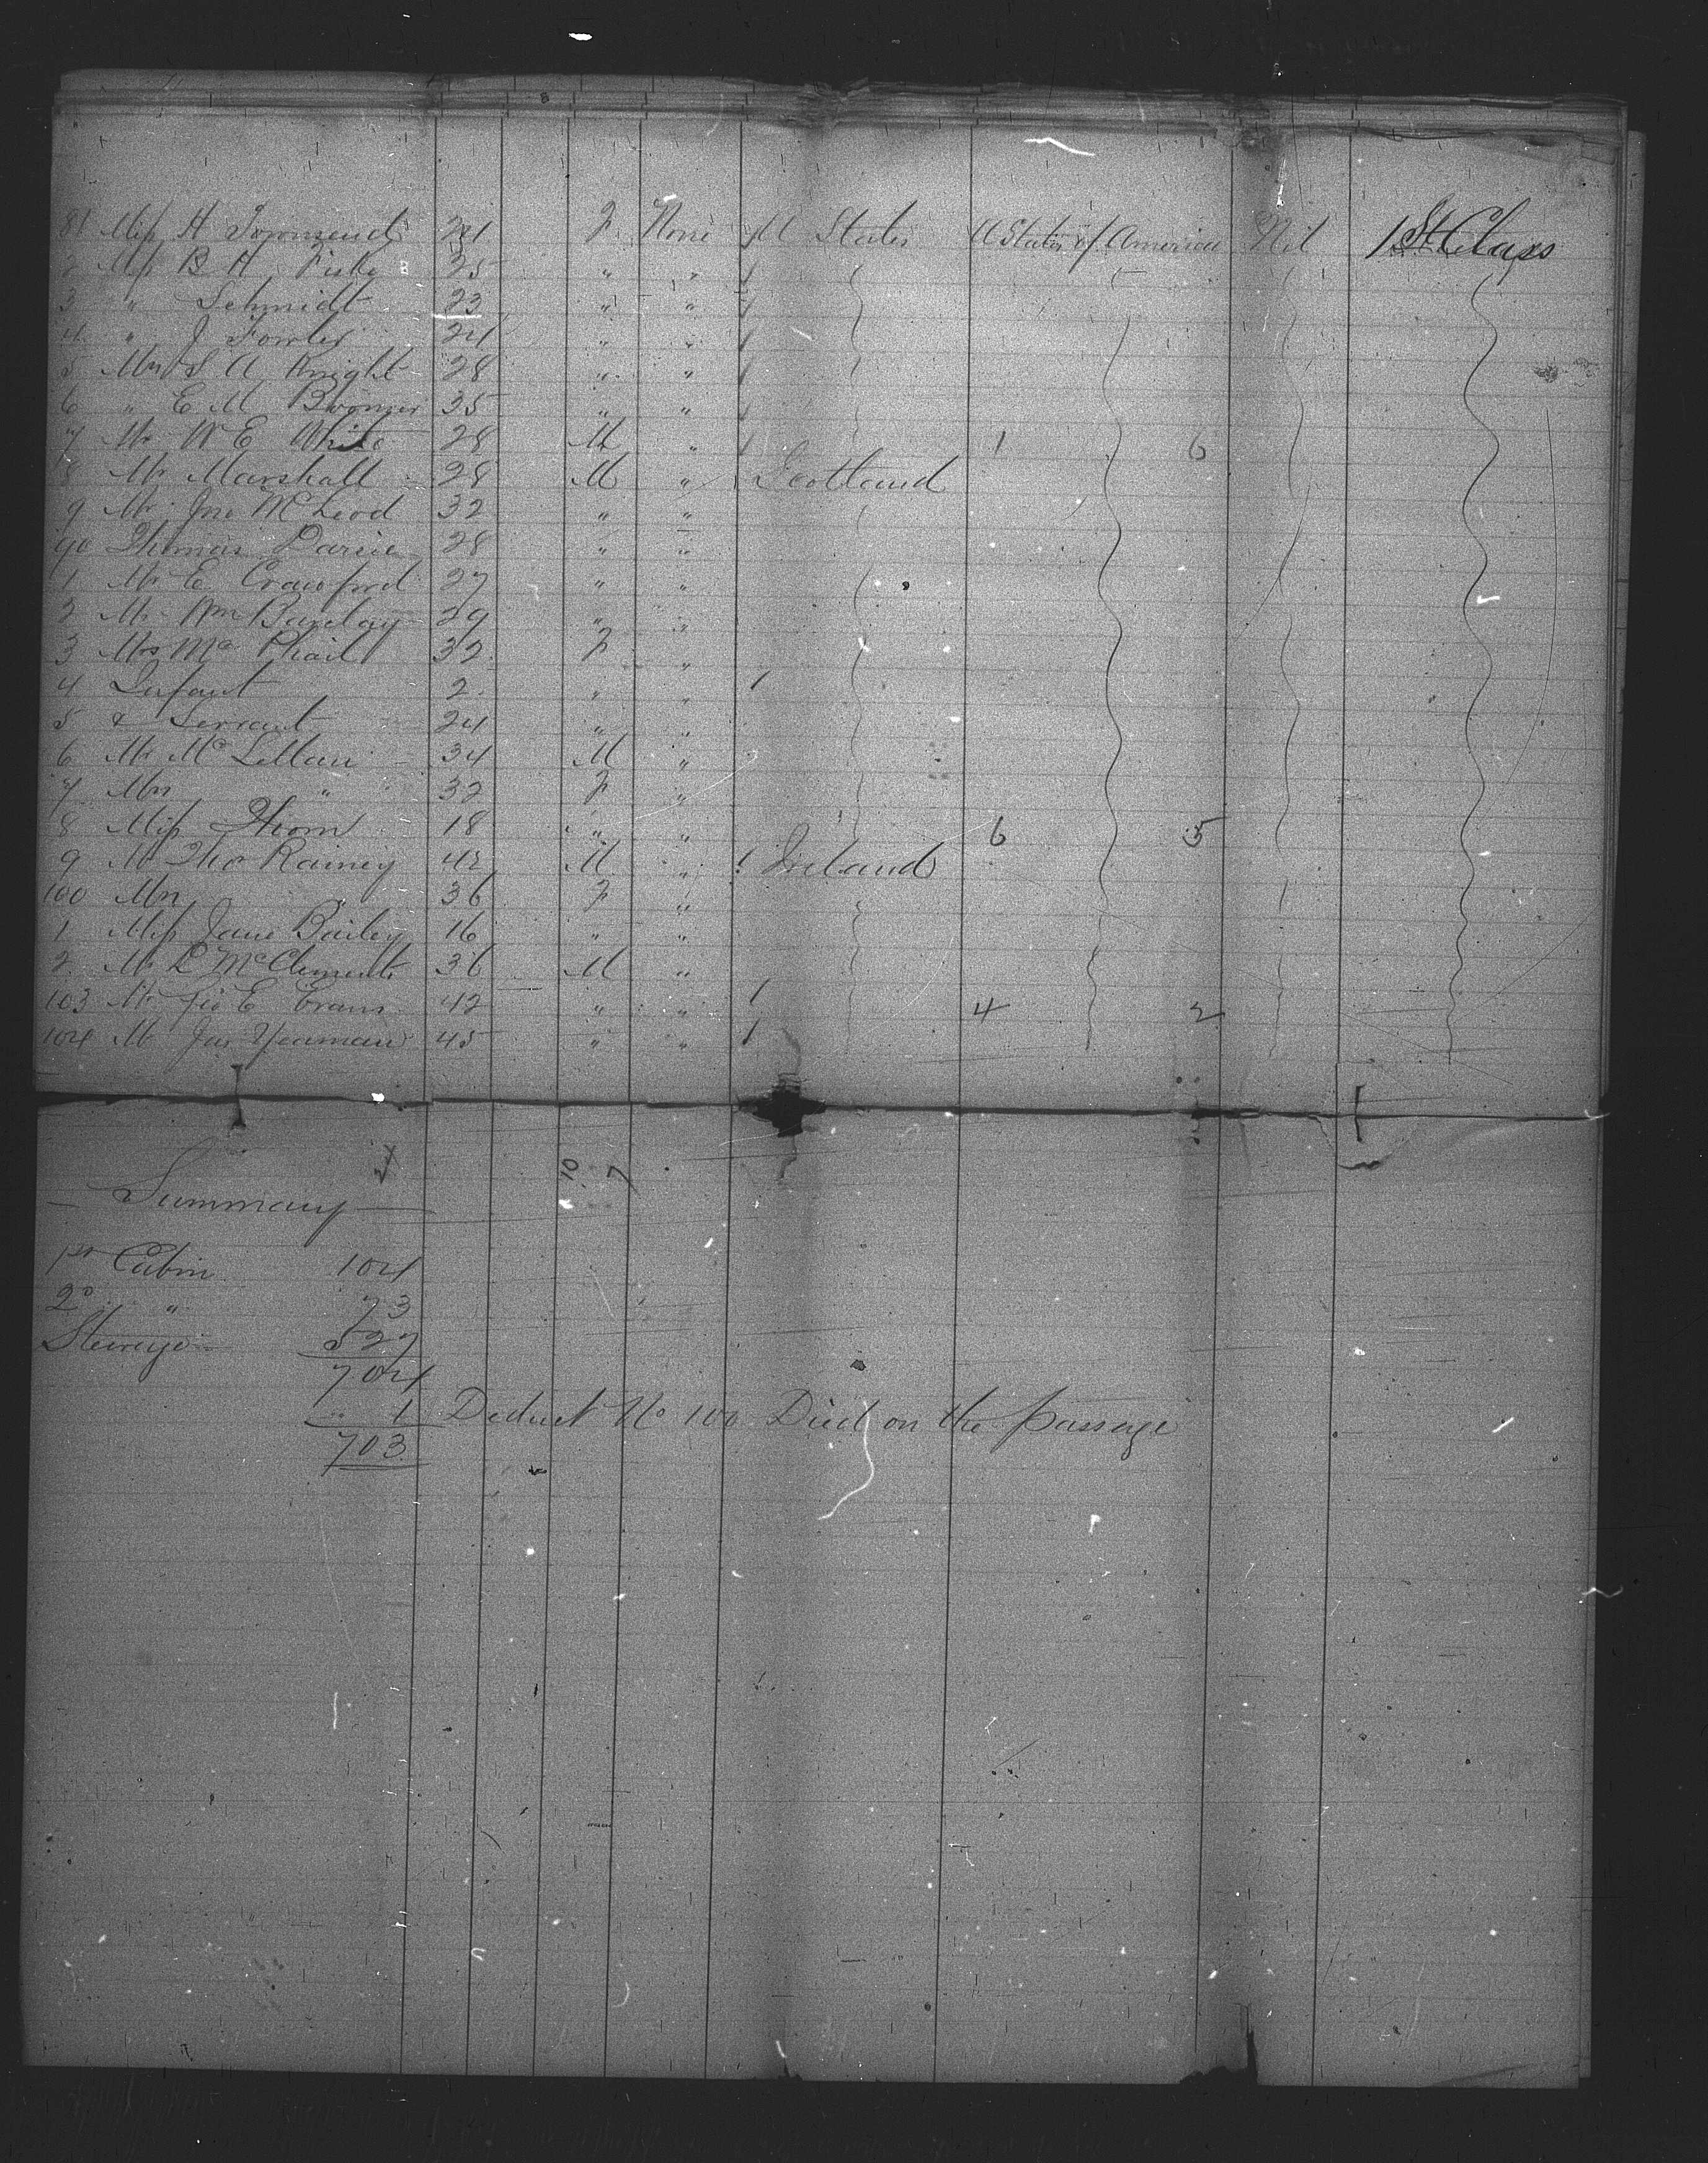 81 Miss H Townsend 24 F None U States U States of America Nil 1st Class
2 Miss B H Fiske 25 " "
3 " Schmidt 23 " "
4 " J Fowler 24 " "
5 Mrs S A Knight 28 " "
6 " E M Boomer 35 " "
7 Mr W E White 28 M " 1 6
8 Mr Marshall 28 M " Scotland
9 Mr Jno McLeod 32 " "
90 Thomas 28 " "
1 Mr E Crawford 27 " "
2 Mr Wm Barclay 29 " "
3 Mrs McPhail 32 F "
4 Infant 2 " "
5 & Servant 24 " "
6 Mr McLellan 34 M "
7 Mrs " 32 F "
8 Miss Thom 18 " " 6 5
9 Mr Thos Rainey 42 M " Ireland
100 Mrs 36 F "
1 Miss Jane Bailey 16 " "
2 Mr D McClements 36 M "
103 Mr Geo E Evans 42 " " 4 2
104 Mr Jas Yeaman 45 " "
10 7
Summary
1st Cabin 104
2o " 73
Steerage 527
704
" 1 Deduct No 100 Died on the passage
703